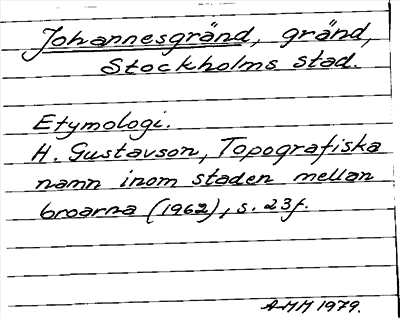 Johannesgränd, gränd,
Stockholms stad.
Etymologi.
H. Gustavson, Topografiska
namn inom staden mellan
broarna (1962), s. 23f.
AMM 1979.